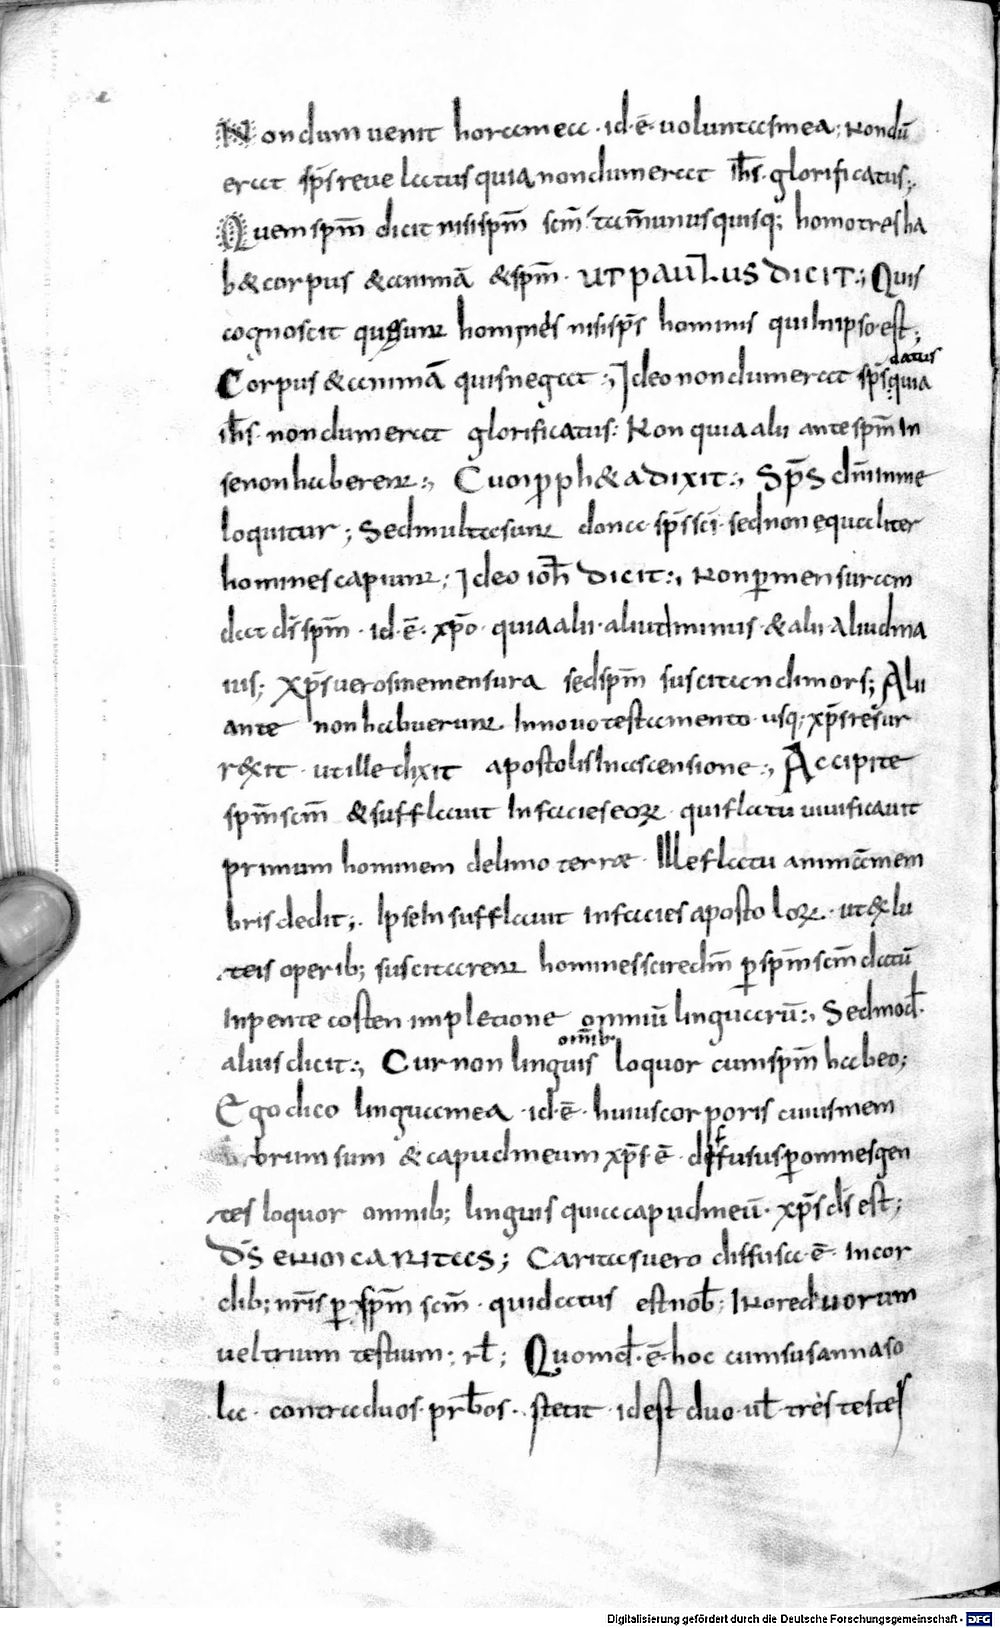 Nondum uenit hora mea · id · ē · uoluntas mea; Nondū
erat sp̄s reuelatus quia nondum erat ih̄s · glorificatus;
Quem sp̄m dicit nisi sp̄m sc̄m tam̄ unusquisq; homo tres ha
b& corpus & animā & sp̄m · UT PAULUS DICIT; Quis
cognoscit quę sunt hominis nisi sp̄s hominis qui In ipso est;
Corpus & animā quis negat; Ideo nondum erat sp̄s datus quia
ih̄s · nondum erat glorificatus: Non quia alii ante sp̄m In
se non haberent; Cum proph&a dixit; Sp̄s dn̄i in me
loquitur; Sed multa sunt dona sp̄s sc̄i · sed non equaliter
homines capiunt; Ideo ioh̄ dicit; Non ꝑ mensuram
dat d̄s sp̄m · id · ē · xp̄o · quia alii · aliud minus · & alii · aliud ma
ius; Xp̄s uero sine mensura sed sp̄m suscitandi mors; Alii
ante non habuerunt In nouo testamento usq; xp̄s resur
rexit · ut ille dixit apostolis In ascensione; Accipite
sp̄m sc̄m & sufflauit In facies eorum · qui flatu uiuificauit
primum hominem de limo terræ · Ille flatu animā mem
bris dedit; Ipse Insufflauit in facies apostolorum · ut ex lu
teis operib; suscitarent homines scire dm̄ ꝑ sp̄m sc̄m datū
In pentecosten impletione omniū linguarū; Sed mod̄
aliuis dicit; Cur non linguis omīb loquor cum sp̄m habeo;
Ego dico lingua mea · id · ē · huius corporis cuius mem
brum sum & capud meum xp̄s ē · diffusus ꝑ omnes gen
tes loquor omnib; linguis quia capud meū · xp̄s d̄s est;
D̄S ENIM CARITAS; Caritas uero diffusa · ē · In cor
dib; nr̄is ꝑ sp̄m sc̄m · qui datus est nob̄; In ore duorum
uel trium testium; rl̄; Quomd̄ · ē · hoc cum susanna so
la · contra duos · prb̄os · stetit · id est duo · ul̄ · tres testes
Digitalisierung gefördert durch die Deutsche Forschungsgemeinschaft - DFG